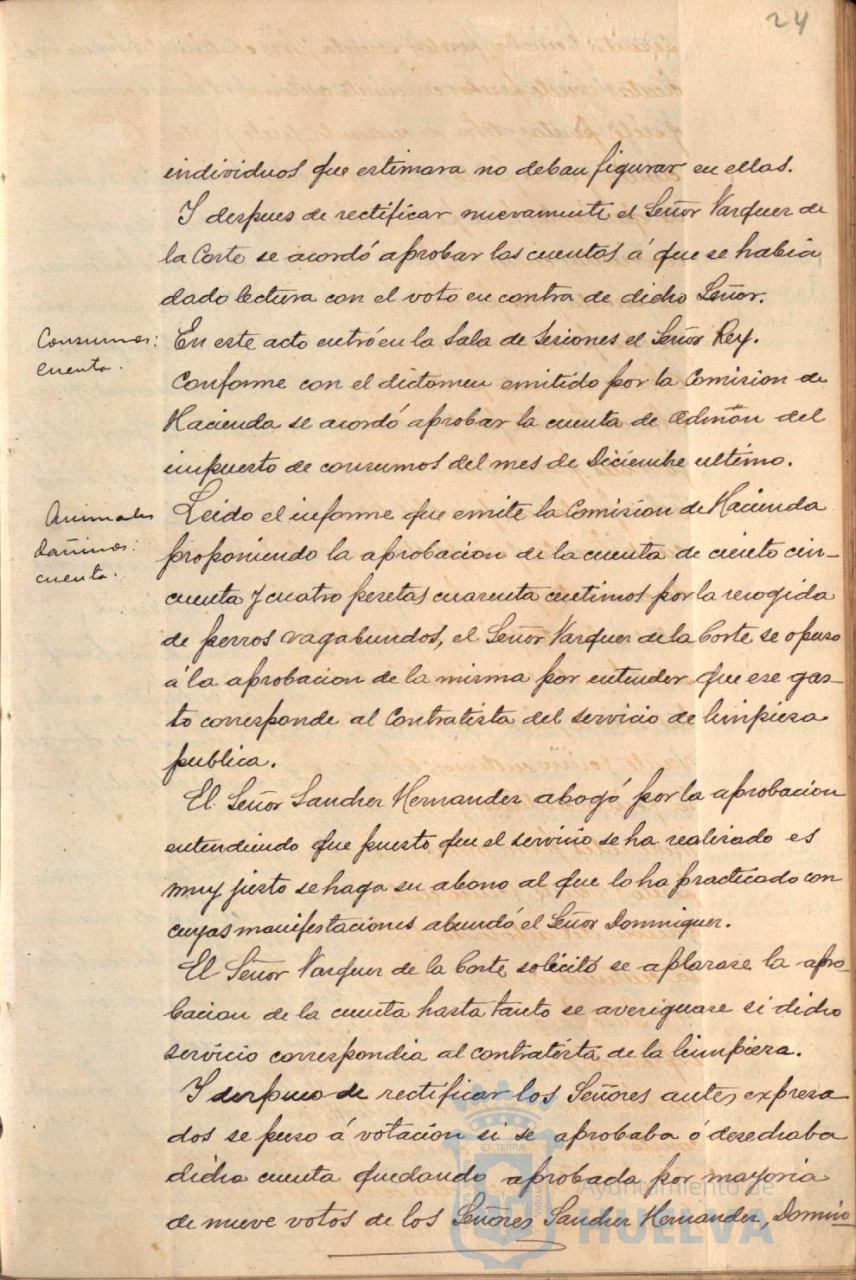 24
individuos que estimara no deban figurar en ellas.
Y despues de rectificar nuevamente el Señor Vazquez de
la Corte se acordó aprobar las cuentas á que se habia
dado lectura con el voto en contra de dicho Señor.
Consumos:
cuenta.
En este acto entró en la Sala de Sesiones el Señor Rey.
Conforme con el dictamen emitido por la Comision de
Hacienda se acordó aprobar la cuenta de Admón del
impuesto de consumos del mes de Diciembre ultimo.
Animales
dañinos:
cuenta.
Leido el informe que emite la Comision de Hacienda
proponiendo la aprobacion de la cuenta de ciento cin-
cuenta y cuatro pesetas cuarenta centimos por la recogida
de perros vagabundos, el Señor Vazquez de la Corte se opuso
á la aprobacion de la misma por entender que ese gas-
to corresponde al Contratista del servicio de limpieza
publica.
El Señor Sanchez Hernandez abogó por la aprobacion
entendiendo que puesto que el servicio se ha realizado es
muy justo se haga su abono al que lo ha practicado con
cuyas manifestaciones abundó el Señor Dominguez.
El Señor Vazquez de la Corte solicitó se aplazase la apro-
bacion de la cuenta hasta tanto se averiguase si dicho
servicio correspondia al contratista de la limpieza.
Y despues de rectificar los Señores antes expresa
dos se puso á votacion si se aprobaba ó desechaba
dicha cuenta quedando aprobada por mayoria
de nueve votos de los Señores Sanchez Hernandez, Domin
Ayuntamiento de
HUELVA